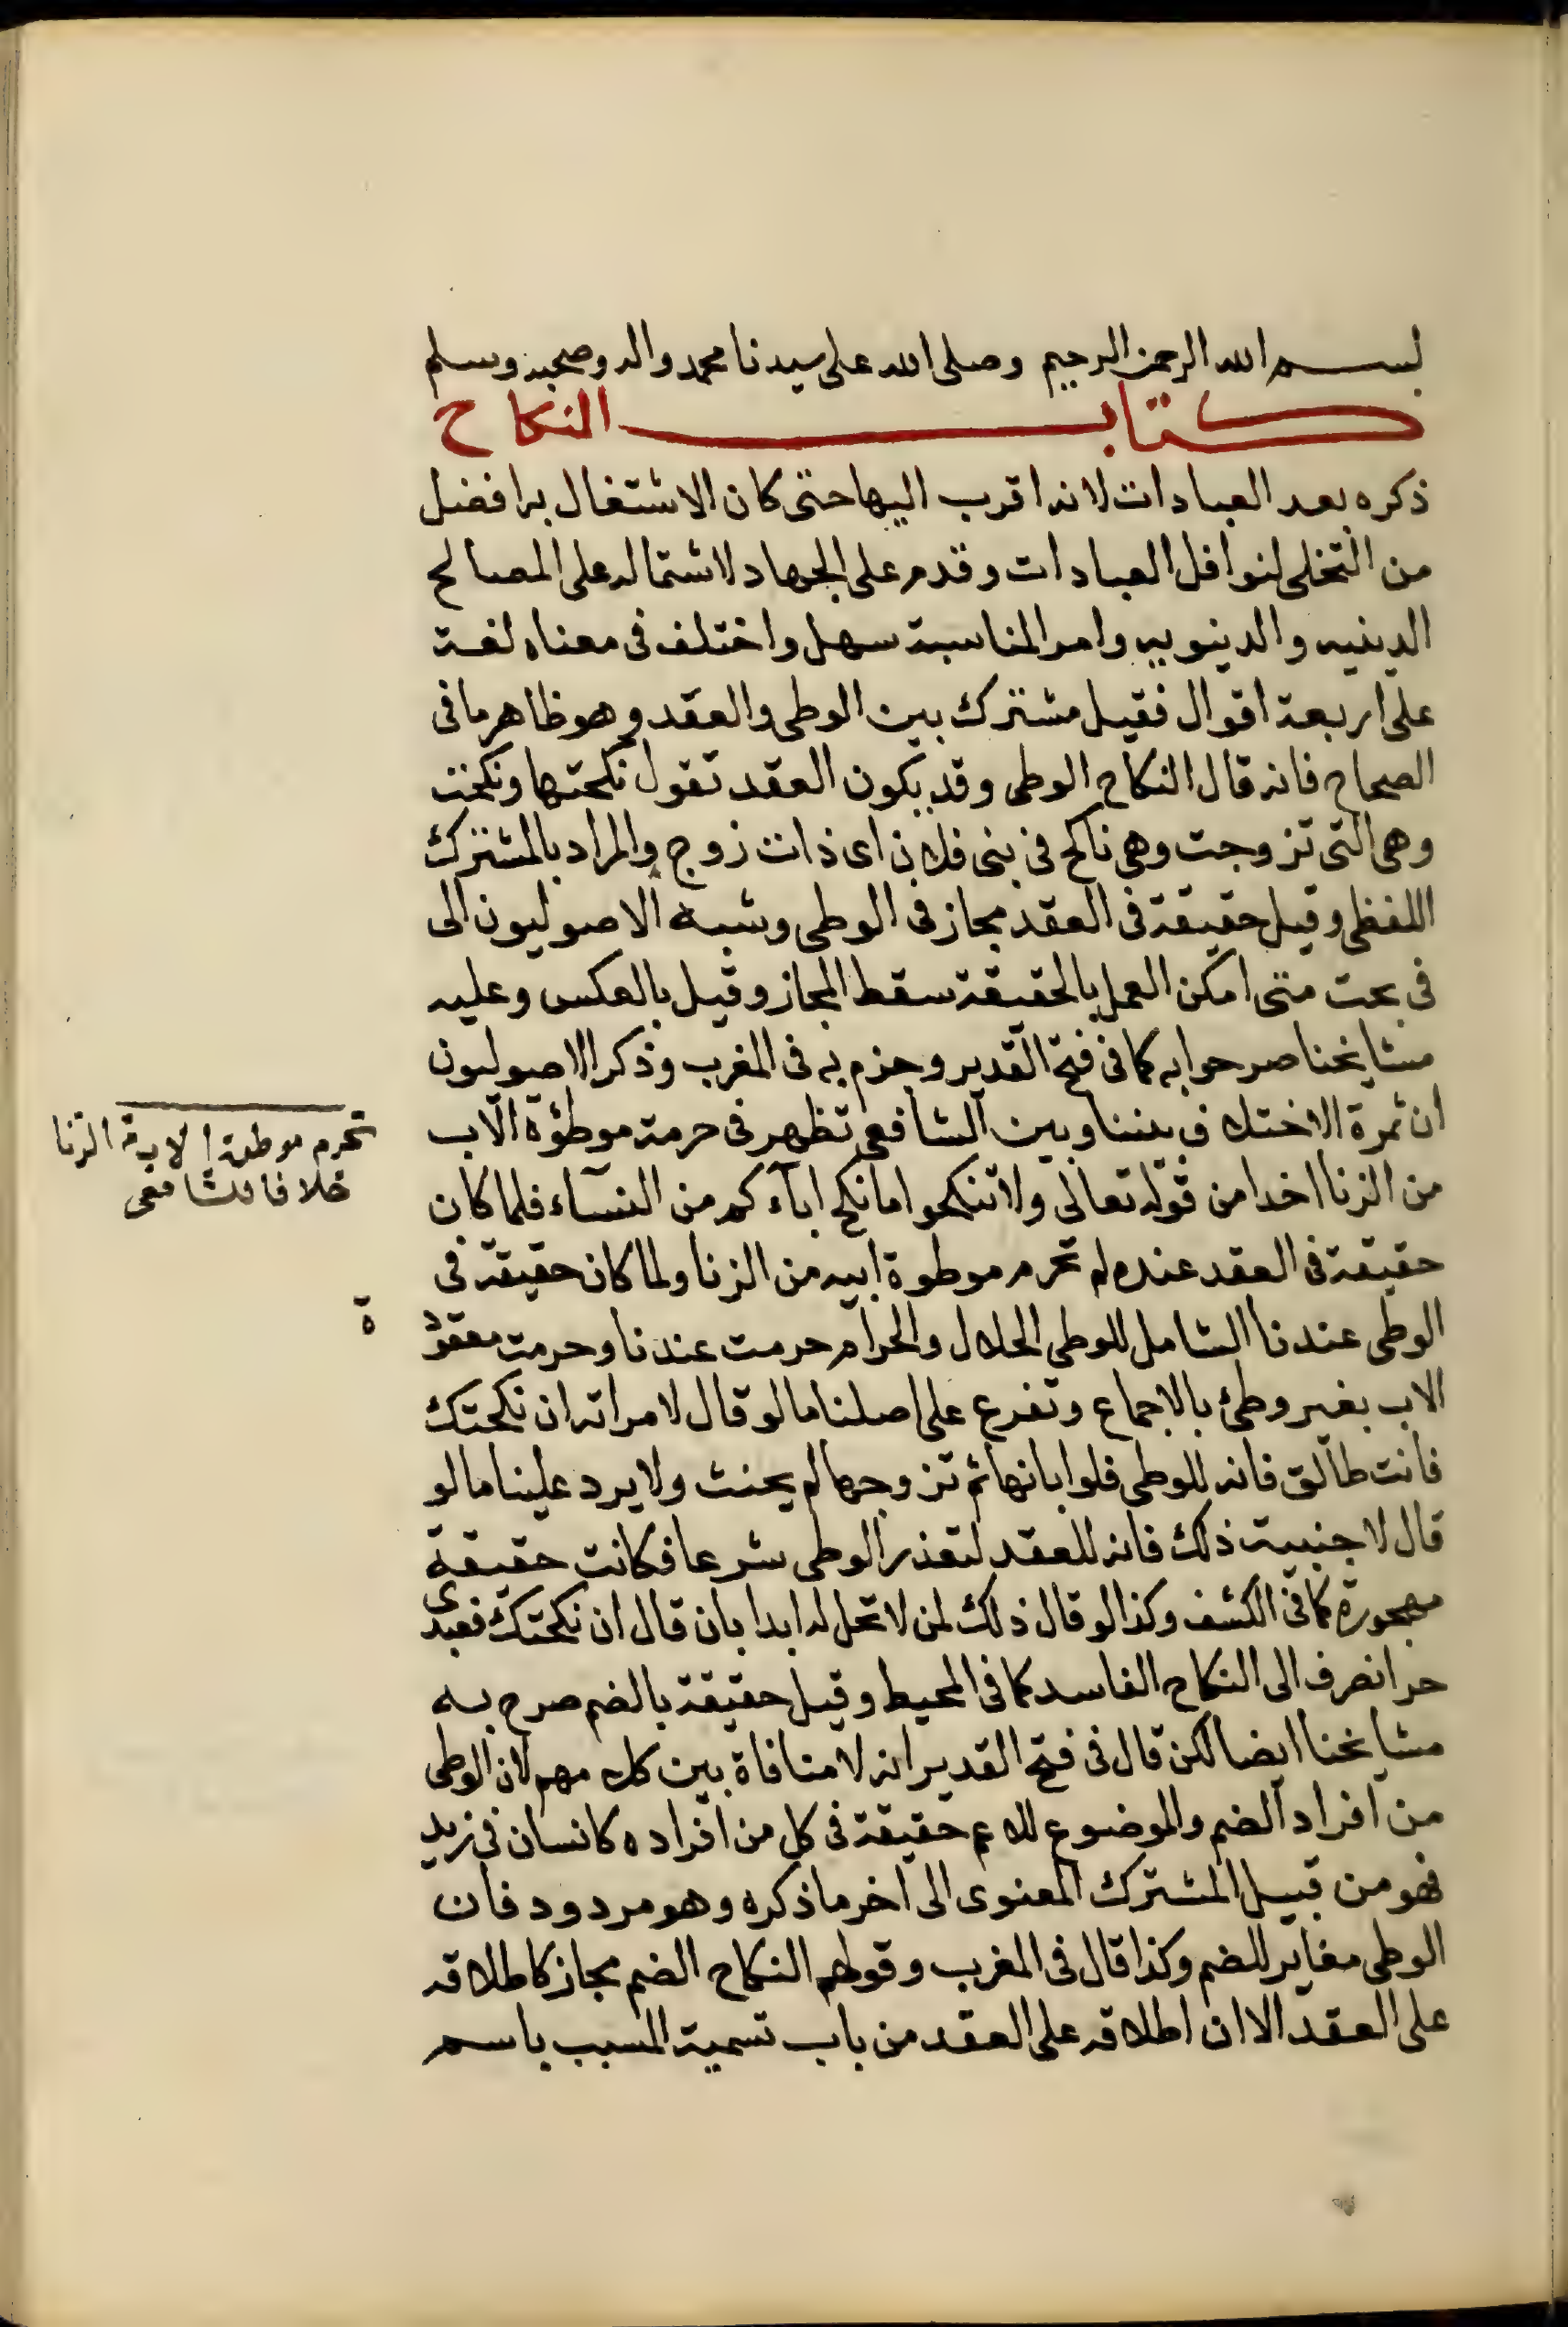 بسم الله الرحمن الرحيم وصلى الله على سيدنا محمد واله وصحبه وسلم
كتاب النكاح
ذكره بعد العبادات لانه اقرب اليها حتى كان الاشتغال به افضل
من التخلى لنوافل العبادات وقدم على الجهاد لاشتماله على المصالح
الدينيه والدينويه وامر المناسبة سهل واختلف فى معناه لغة
على اربعة اقوال فقيل مشترك بين الوطى والعقد وهو ظاهر ما فى
الصحاح فانه قال النكاح الوطى وقد يكون العقد تقول نكحتها ونكحت
وهى التى تزوجت وهى ناكح فى بنى فلان اى ذات زوج والمراد بالمشترك
اللفظى وقيل حقيقة فى العقد مجاز فى الوطى وشبه الاصوليون الى
فى بحث متى امكن العمل بالحقيقة سقط المجاز وقيل بالعكس وعليه
مشايخنا صرحوا به كما فى فتح القدير وجزم به فى المغرب وذكر الاصوليون
ان ثمرة الاختلاف بيننا وبين الشافعى تظهر فى حرمة موطؤة الاب
من الزنا اخدا من قوله تعالى ولا تنكحوا ما نكح اباءكم من النساء فلما كان
حقيقة فى العقد عنده لم تحرم موطوة ابيه من الزنا ولما كان حقيقة فى
الوطى عندنا الشامل للوطى الحلال والحرام حرمت عندنا وحرمت معقود
ة
الاب بغير وطئ بالاجماع وتفرع على اصلنا ما لو قال لامراته ان نكحتك
فانت طالق فانه للوطى فلو ابانها ثم تزوجها لم يحنث ولا يرد علينا ما لو
قال لاجنبية ذلك فانه للعقد لتعذر الوطى شرعا فكانت حقيقة
مهجورة كما فى الكشف وكذا لو قال ذلك لمن لا تحل له ابدا بان قال ان نكحتك فعبدى
حر انصرف الى النكاح الفاسد كما فى المحيط وقيل حقيقة بالضم صرح به
مشايخنا ايضا لكن قال فى فتح القدير انه لا منافاة بين كلامهم لان الوطى
من افراد الضم والموضوع للاعم حقيقة فى كل من افراده كانسان فى زيد
فهو من قبيل المشترك المعنوى الى اخر ما ذكره وهو مردود فان
الوطى مغاير للضم وكذا قال فى المغرب وقولهم النكاح الضم مجاز كاطلاقه
على العقد الا ان اطلاقه على العقد من باب تسمية المسبب باسم
تحرم موطئة الاب من الزنا
خلافا للشافعى